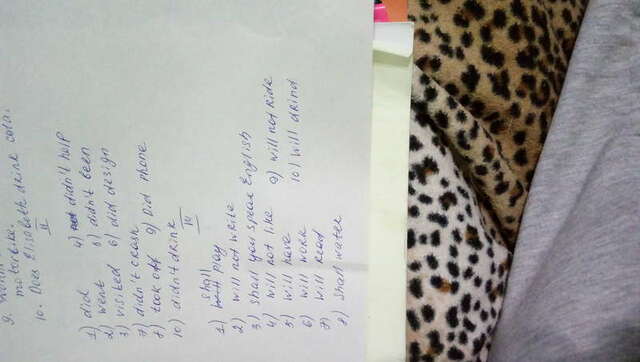 9.
motorbike.
10. Does Elisabeth drink cola.
II
1) did 4) didn't help
2) went 5) didn't been
3) visited 6) did design
7) didn't crash
8) took off 9) Did phone
10) didn't drink
III
shall
1) play
2) will not write
3) shall you speak English
4) will not like 9) will not ride
5) will have 10) will drind
6) will work
7) will read
8) shall water